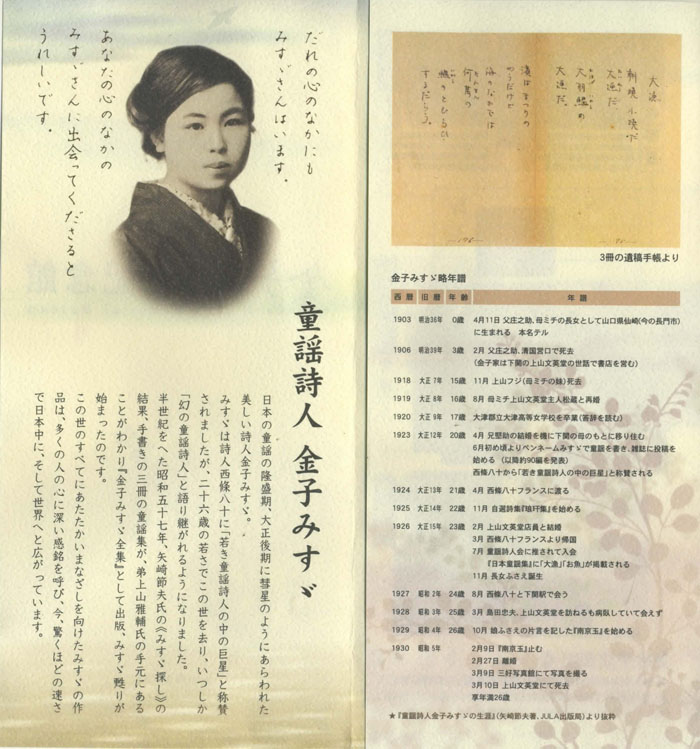 だれの心のなかにも
みすゞさんはいます。
あなたの心のなかの
みすゞさんに出会ってくださると
うれしいです。
童謡詩人 金子みすゞ
日本の童謡の隆盛期、大正後期に彗星のようにあらわれた
美しい詩人金子みすゞ。
みすゞは詩人西條八十に「若き童謡詩人の中の巨星」と称賛
されましたが、二十六歳の若さでこの世を去り、いつしか
「幻の童謡詩人」と語り継がれるようになりました。
半世紀をへた昭和五十七年、矢崎節夫氏の《みすゞ探し》の
結果、手書きの三冊の童謡集が、弟上山雅輔氏の手元にある
ことがわかり『金子みすゞ全集』として出版、みすゞ甦りが
始まったのです。
この世のすべてにあたたかいまなざしを向けたみすゞの作
品は、多くの人の心に深い感銘を呼び、今、驚くほどの速さ
で日本中に、そして世界へと広がっています。
大漁
朝焼小焼だ
大漁だ
大羽鰮の
大漁だ。
濱はまつりの
やうだけど
海のなかでは
何萬の
鰮のとむらひ
するだらう。
3冊の遺稿手帳より
金子みすゞ略年譜
西暦 旧暦 年齢 年譜
1903 明治36年 0歳 4月11日 父庄之助、母ミチの長女として山口県仙崎(今の長門市)
に生まれる 本名テル
1906 明治39年 3歳 2月 父庄之助、清国営口で死去
(金子家は下関の上山文英堂の世話で書店を営む)
1918 大正7年 15歳 11月 上山フジ(母ミチの妹)死去
1919 大正8年 16歳 8月 母ミチ上山文英堂主人松蔵と再婚
1920 大正9年 17歳 大津郡立大津高等女学校を卒業(答辞を読む)
1923 大正12年 20歳 4月 兄堅助の結婚を機に下関の母のもとに移り住む
6月初め頃よりペンネームみすゞで童謡を書き、雑誌に投稿を
始める (以降約90編を発表)
西條八十から「若き童謡詩人の中の巨星」と称賛される
1924 大正13年 21歳 4月 西條八十フランスに渡る
1925 大正14年 22歳 11月 自選詩集『琅玕集』を始める
1926 大正15年 23歳 2月 上山文英堂店員と結婚
3月 西條八十フランスより帰国
7月 童謡詩人会に推されて入会
『日本童謡集』に「大漁」「お魚」が掲載される
11月 長女ふさえ誕生
1927 昭和2年 24歳 8月 西條八十と下関駅で会う
1928 昭和3年 25歳 3月 島田忠夫、上山文英堂を訪ねるも病臥していて会えず
1929 昭和4年 26歳 10月 娘ふさえの片言を記した『南京玉』を始める
1930 昭和5年 2月9日『南京玉』止む
2月27日 離婚
3月9日 三好写真館にて写真を撮る
3月10日 上山文英堂にて死去
享年満26歳
★『童謡詩人金子みすゞの生涯』(矢崎節夫著、JULA出版局)より抜粋